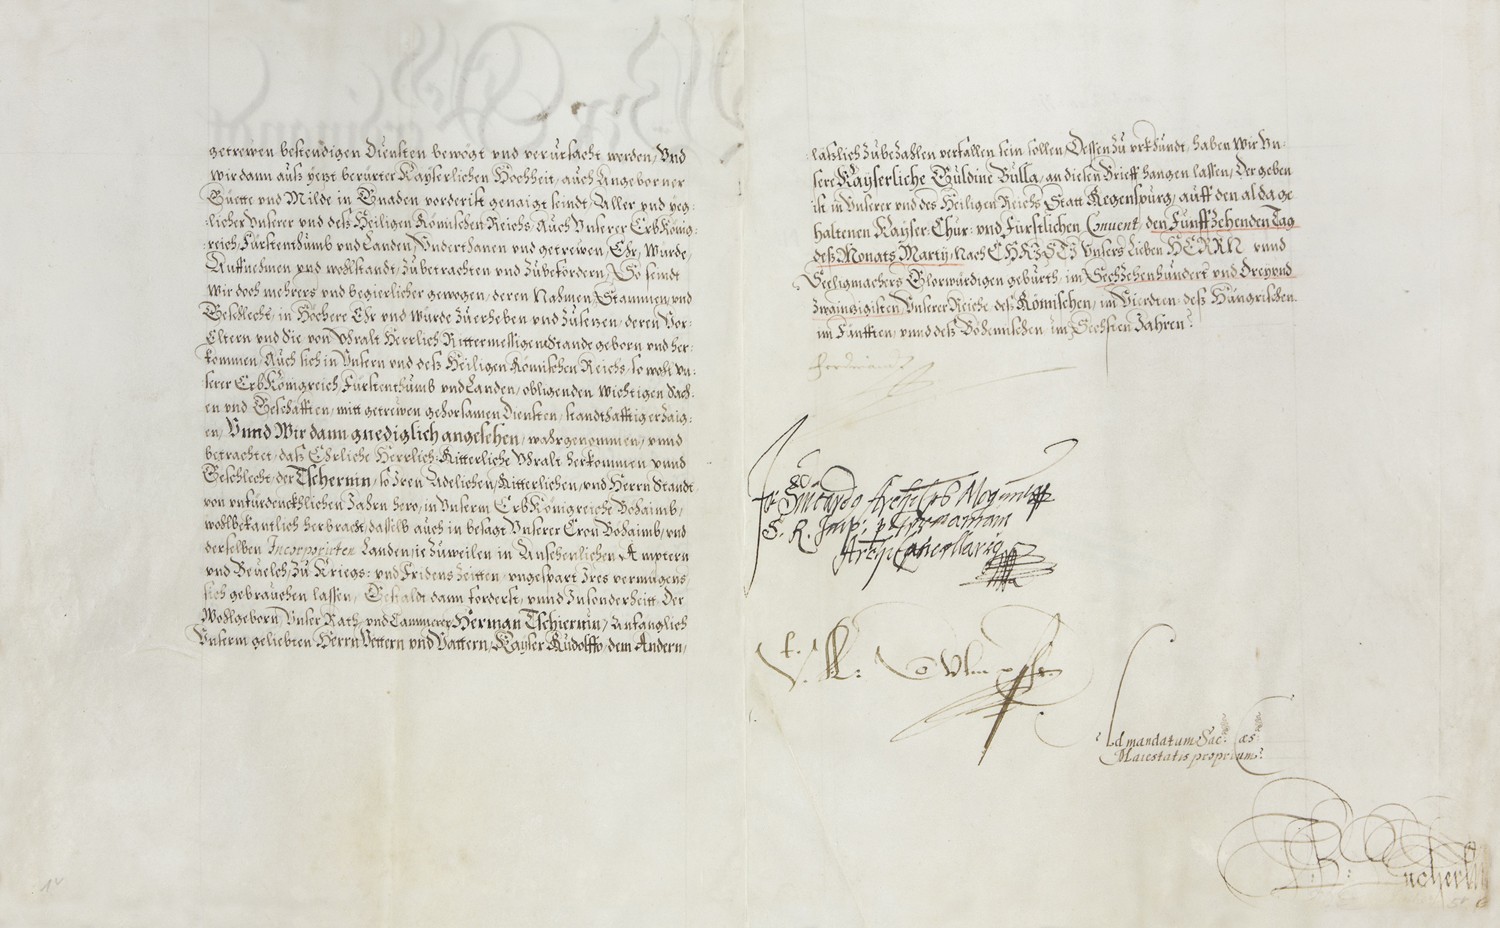 getrewen bestendigen Diensten bewögt vnd verursacht werden, Vnd
wir dann auß yetzt berürter Kayserlichen Hochheit, auch Angeborner
Güette vnd Milde in Gnaden vorderist genaigt seindt, Aller vnd yeg-
licher Vnserer vnd deß Heiligen Römischen Reichs, Auch Vnserer ErbKönig-
reich, Fürstenthumb vnd Landen, Vnderthanen vnd getrewen, Ehr, Würde,
Auffnehmen vnd wohlstandt, zubetrachten vnd zubefördern, So seindt
wir doch mehrers vnd begierlicher gewogen, deren Nahmen, Stammen, vnd
Geschlecht, in Höchere Ehr vnd würde zuerheben vnd zusetzen, deren Vor-
Eltern vnd die von Vhralt Herrlich, Rittermessigem Stande geborn vnd her-
kommen, Auch sich in Vnsern vnd deß Heiligen Römischen Reichs, so wohl Vn-
serer ErbKönigreich, Fürstenthumb vnd Landen, obligenden wichtigen Sach-
en vnd Geschäfften, mitt getrewen gehorsamen Diensten, standthafftig erzaig-
en, Vnnd Wir dann gnediglich angesehen, wahrgenommen, vnnd
betrachtet, daß Ehrliche Herrlich: Ritterliche Vhralt herkommen vnnd
Geschlecht, der Tschernin, so Iren Adelichen, Ritterlichen, vnd Herrn Standt
von vnfürdencklichen Jahrn hero, in Vnserm ErbKönigreiche Böhaimb,
wohlbekantlich herbracht, dasselb auch in besagt Vnserer Cron Böhaimb, vnd
derselben Incorporirten Landen, je zuweilen in Ansehenlichen Amptern
vnd Beuelch, zu Kriegs: vnd Fridenszeitten, vngespart Ires vermügens,
sich gebrauchen lassen, Gestaldt dann forderst, vnnd Insonderheitt, Der
Wohlgeborn, Vnser Rath, vnd Cammerer, Herman Tschernin, Anfanglich
Vnserm geliebten Herrn Vettern vnd Vattern, Kayser Rudolffo, dem Andern,
läßlich zubezahlen verfallen sein sollen, Dessen zu vrkhundt, haben Wir Vn-
sere Kayserliche Guldine Bulla, an diesen Brieff hangen lassen, Der geben
ist in Vnserer vnd des Heiligen Reichs Statt Regenspurg, auff den alda ge
haltenen Kayser: Chur: vnd Fürstlichen Conuent, den Fünffzehenden Tag
deß Monats Martij, Nach CHRISTI Vnsers Lieben HERRN vnnd
Seeligmachers Glorwürdigen geburth, im Sechzehenhundert vnd Dreyvnd
zwaintzigisten, Vnserer Reiche deß Römischen, im Vierdten, deß Hungrischen,
im Fünfften, vnnd deß Böhemischen im Sechsten Jahren.
Ferdinandt
Archi
S. R. Imp: p Germaniam
Archi Cancellarius
Ad mandatum Sac: Cæs:
Maiestatis proprium.